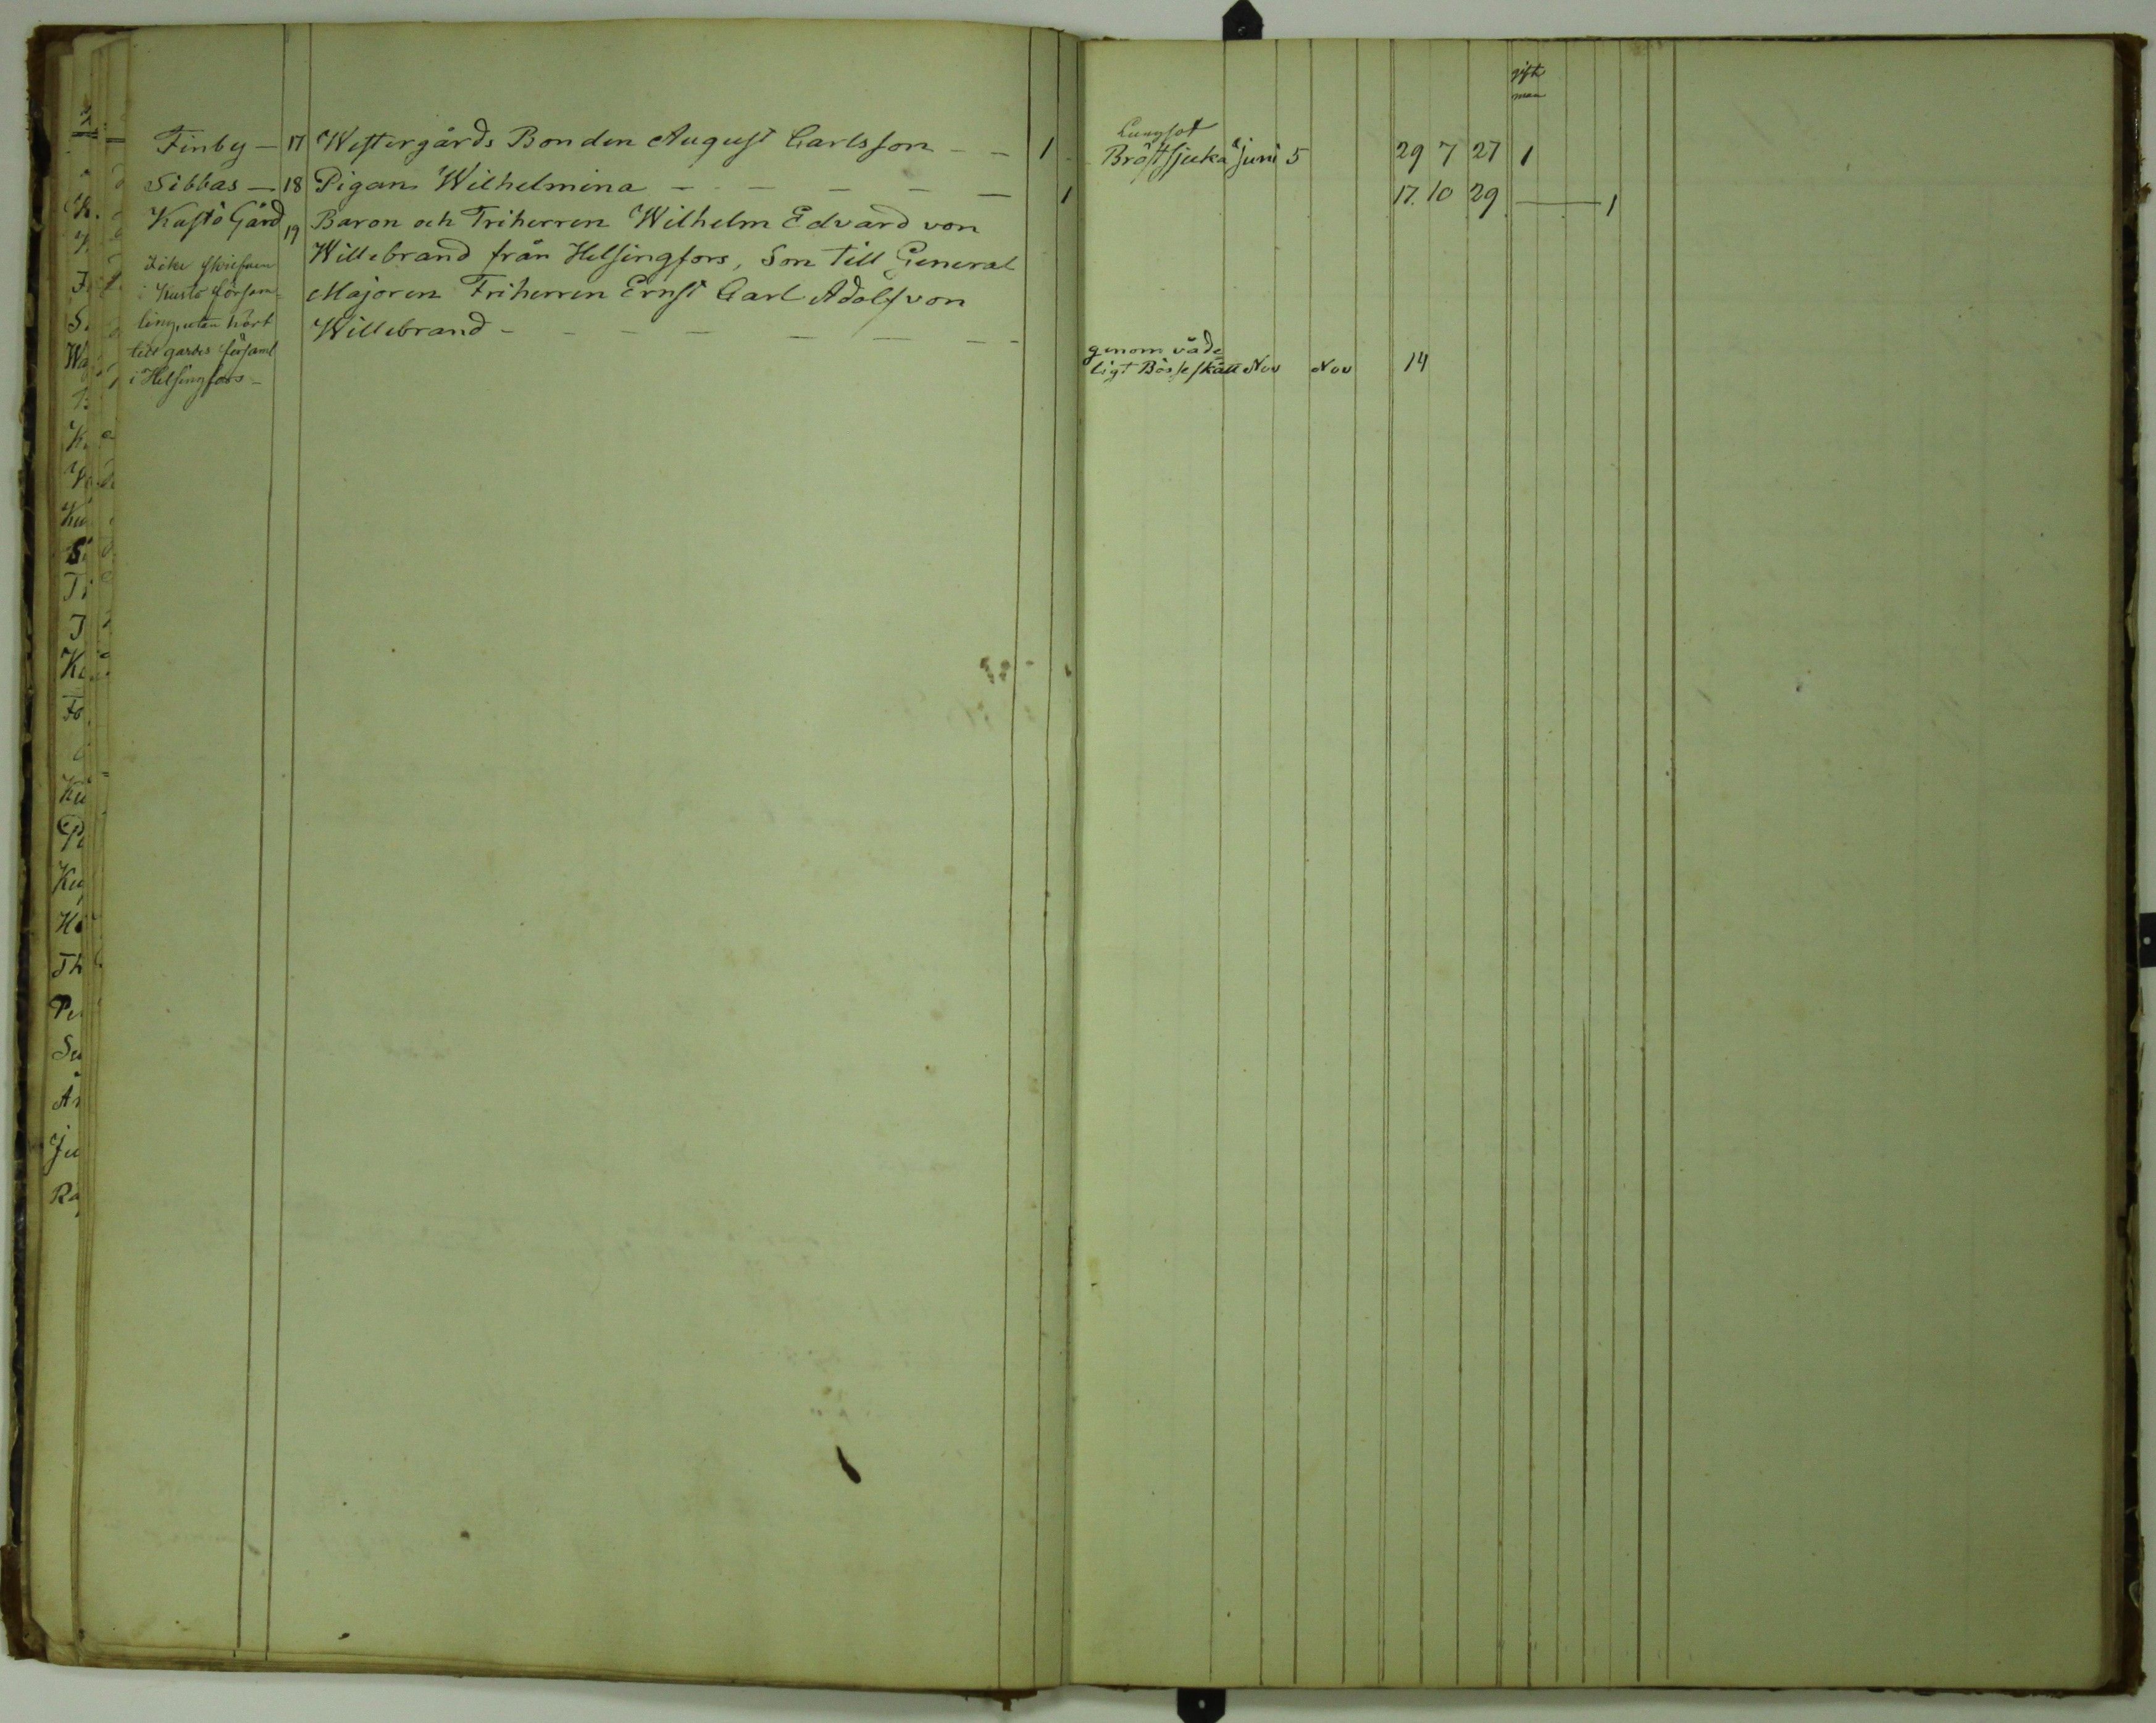 Finby — 17 Westergårds Bonden August Carlsson - - 1
Sibbas — 18 Pigan Wilhelmina - - - - - 1
Kustö Gård 19 Baron och Friherren Wilhelm Edvard von
Willebrand från Helsingfors, Son till General
Majoren Friherren Ernst Carl Adolf von
Willebrand - - - - - - -
Icke skrifven
i Kustö försam-
ling, utan hört
till gardes församl
i Helsingfors -
gift
man
Lungsot
Bröstsjuka Juni 5 29 7 27 1
17. 10 29 — 1
genom våde
ligt Bösseskått Nov Nov 14